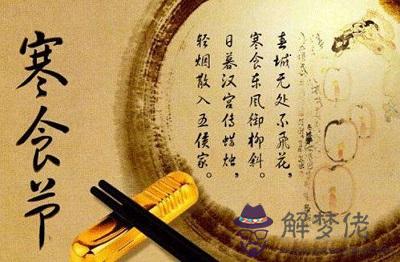 寒食节
春城无处不飞花，
寒食东风御柳斜。
日暮汉宫传蜡烛，
轻烟散入五侯家。
解梦佬